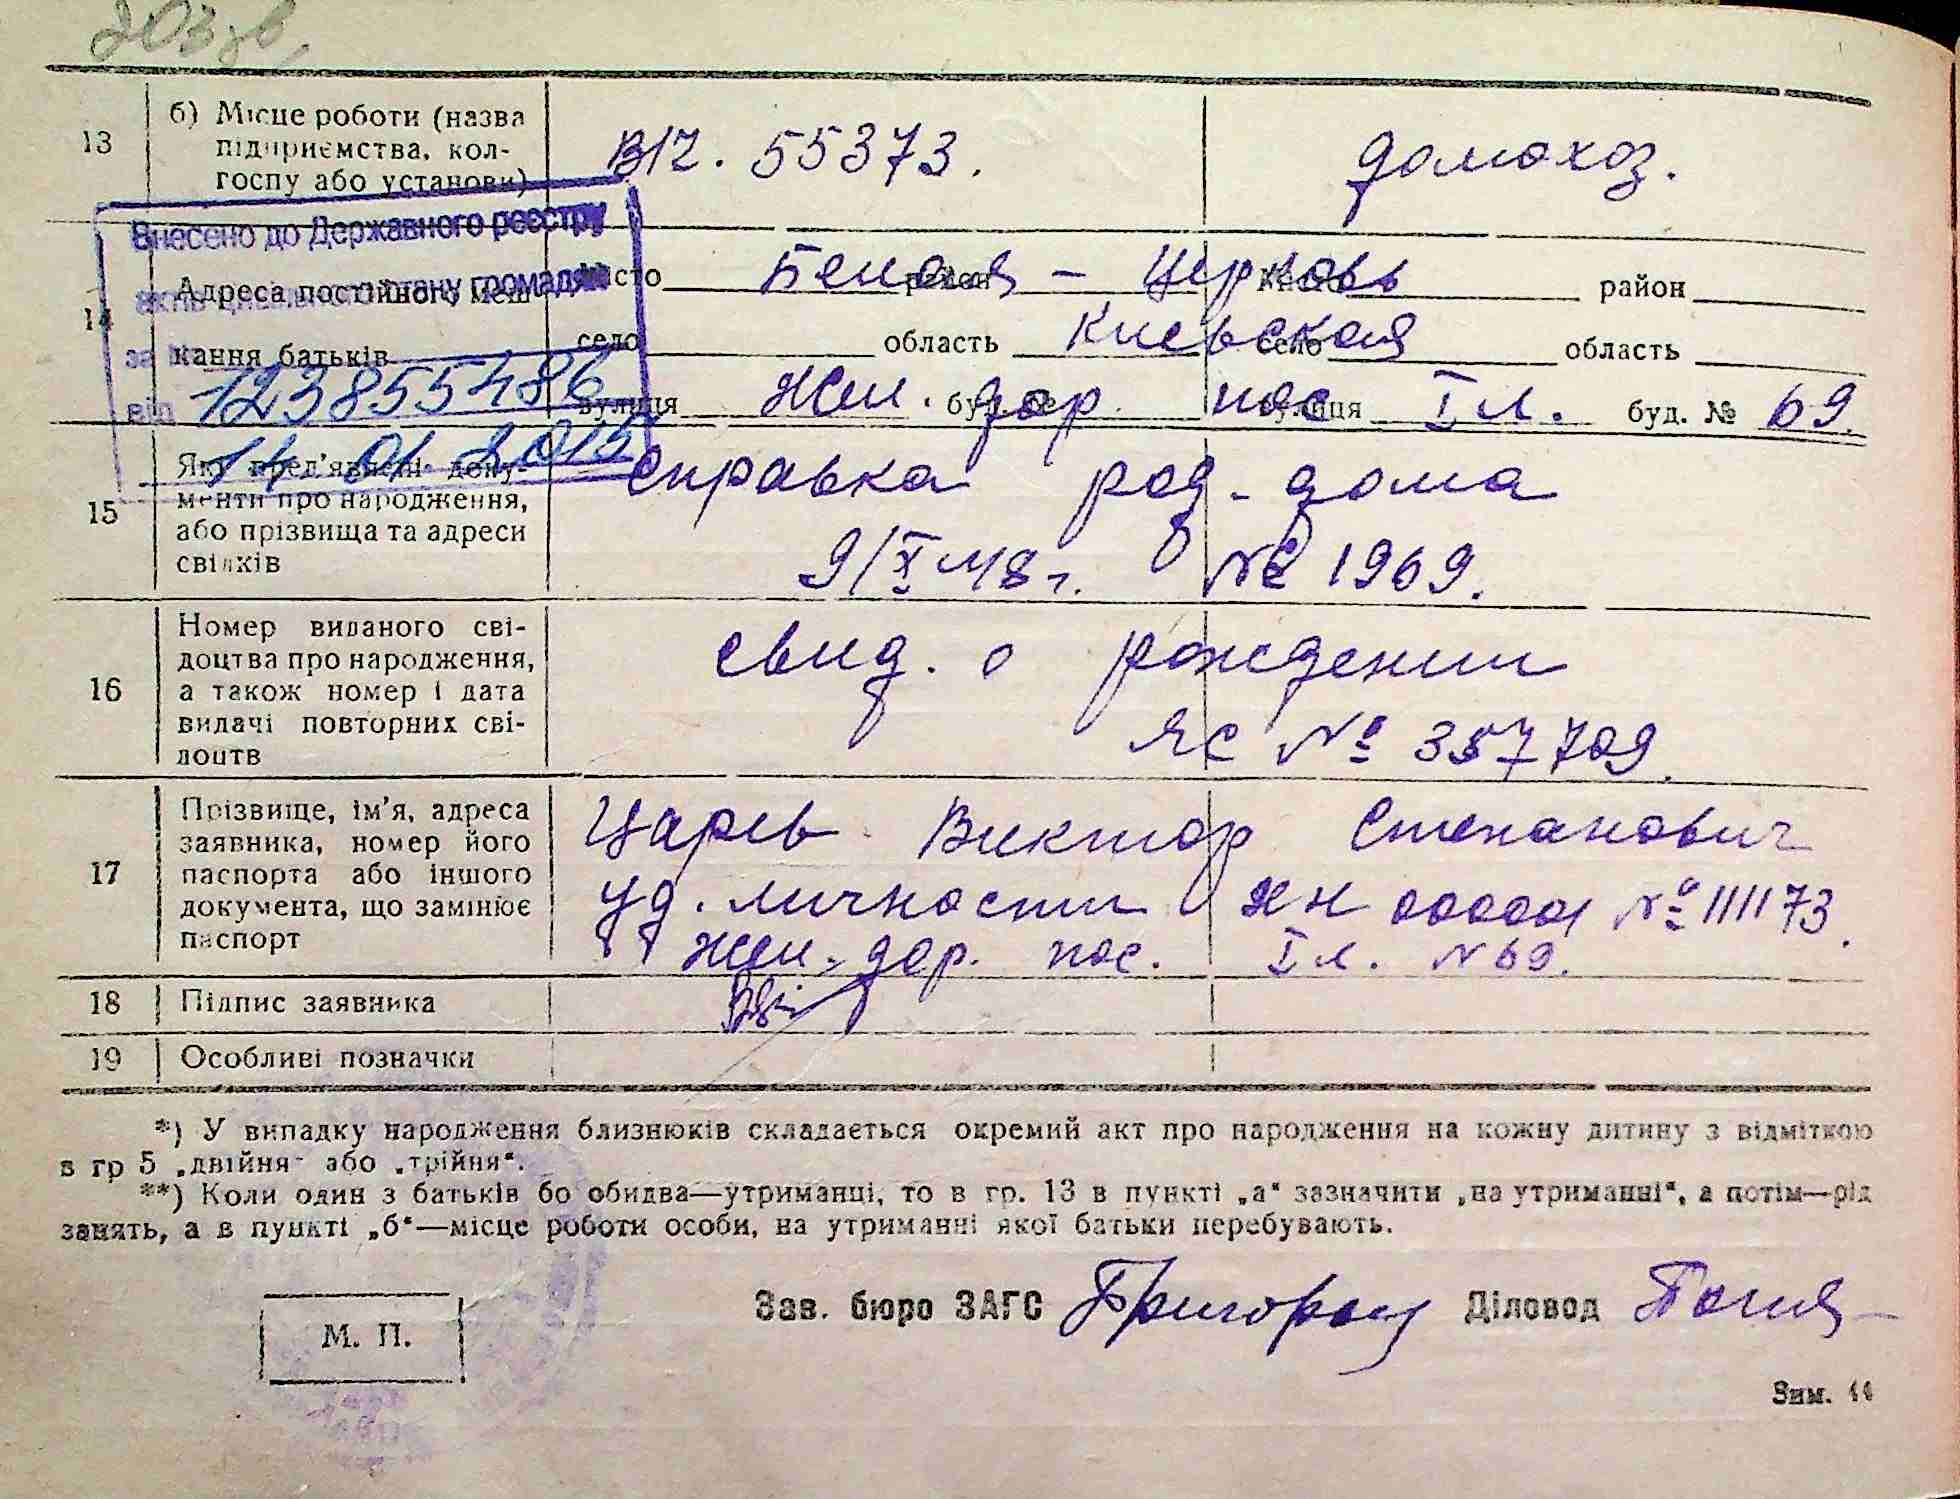 203 зв,
13 б) Місце роботи (назва підприємства, кол-госпу або установи) В/Ч. 55373. домохоз.
Внесено до Державного реєстру
актів цивільного стану громадян
за № 123855486
від 14 01 2015
14 Адреса постійного меш-кання батьків
місто Белая - Церковь район місто район
село область Киевская село область
вулиця Жел. дор. пос I л. буд. № вулиця буд. № 69.
15 Які пред'явлені доку-менти про народження, або прізвища та адреси свідків
справка род-дома
9/X 48 г. № 1969.
16 Номер виданого сві-доцтва про народження, а також номер і дата видачі повторних сві-доцтв
свид. о рождении
ЯС № 357709.
17 Прізвище, ім'я, адреса заявника, номер його паспорта або іншого документа, що замінює паспорт
Царев Виктор Степанович
уд. личности ЯН № 111173.
Жел. дор. пос. I л. N 69.
18 Підпис заявника
19 Особливі позначки
*) У випадку народження близнюків складається окремий акт про народження на кожну дитину з відміткою
в гр 5 „двійня" або „трійня".
**) Коли один з батьків бо обидва—утриманці, то в гр. 13 в пункті „а" зазначити „на утриманні", а потім—рід
занять, а в пункті „б"—місце роботи особи, на утриманні якої батьки перебувають.
Зав. бюро ЗАГС Діловод
М. П.
Зим. 44